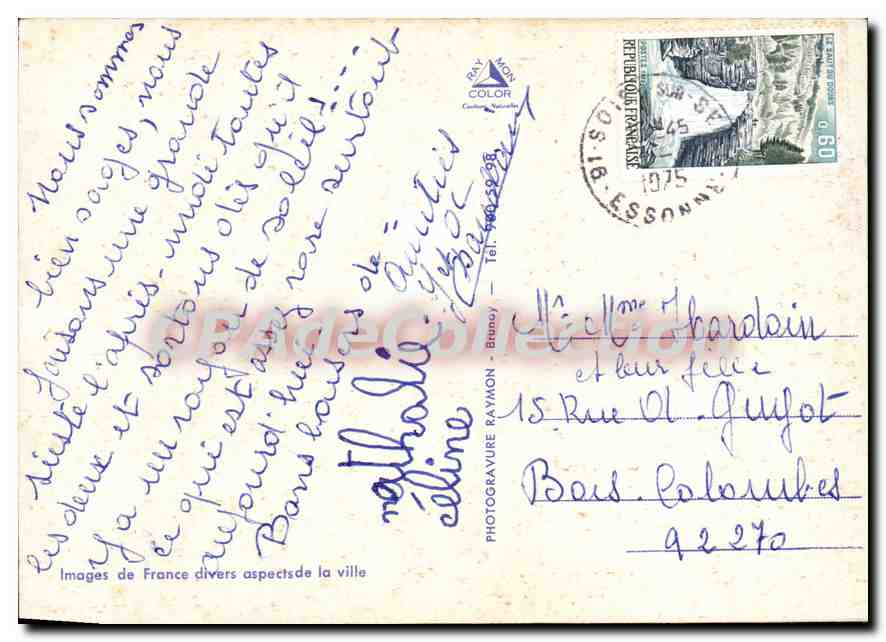 Nous sommes
bien sages, nous
faisons une grande
sieste l'après-midi toutes
les deux et sortons dès qu'il
y a un rayon de soleil!
ce qui est assez rare surtout
aujourd'hui
Bons baisers de
nathalie
céline
Amitiés
RAY MON
COLOR
Couleurs Naturelles
LE SAUT DU DOUBS
0,60
POSTES
REPUBLIQUE FRANÇAISE
SUR
45
1975
91 ESSONNE
Mr et Mme Hardoin
et leur fille
15 Rue A. Guyot
Bois-Colombes
92270
PHOTOGRAVURE RAYMON - Brunoy — Tél.
Images de France divers aspects de la ville
CPAdeCollection